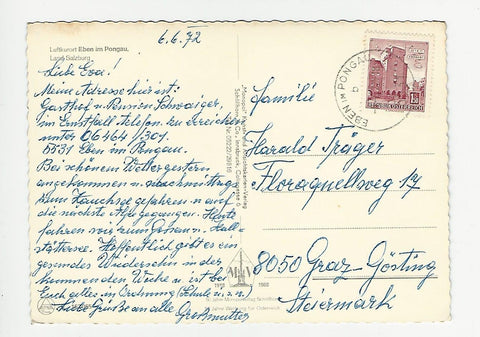 6.6.72
Luftkurort Eben im Pongau,
Land Salzburg
Liebe Eva!
Meine Adresse hier ist:
Gasthof u. Pension Schwaiger,
im Ernstfall Telefon. zu erreichen
unter 06464/301.
5531 Eben im Pongau.
Bei schönem Wetter gestern
angekommen u. nachmittags
zum gefahren u. auf
die nächste Alpe gegangen. Heute
fahren wir zum Gosau u. Hall-
stättersee. Hoffentlich gibt es ein
gesundes Wiedersehn in der
kommenden Woche u. ist bei
Euch alles in Ordnung (Schule u.s.w.)
Liebe Grüße an alle Großmutter
EBEN IM PONGAU
REPUBLIK ÖSTERREICH
Familie
Harald Träger
Floraquellweg 17
8050 Graz-Gösting
Steiermark